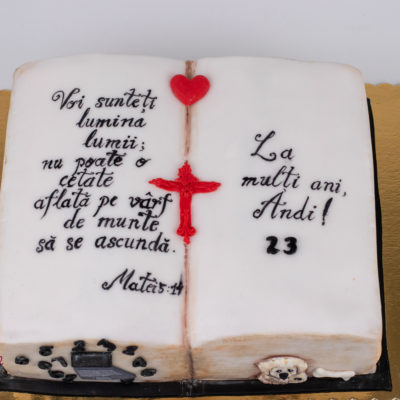 Voi sunteți
lumina
lumii;
nu poate o
cetate
aflată pe vârf
de munte
să se ascundă.
Matei 5:14
La
mulți ani,
Andi!
23